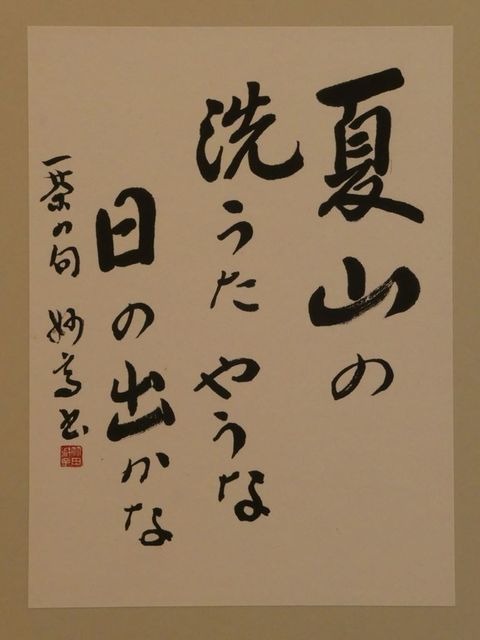 夏山の
洗うた やうな
日の出かな
一茶の句 妙高书